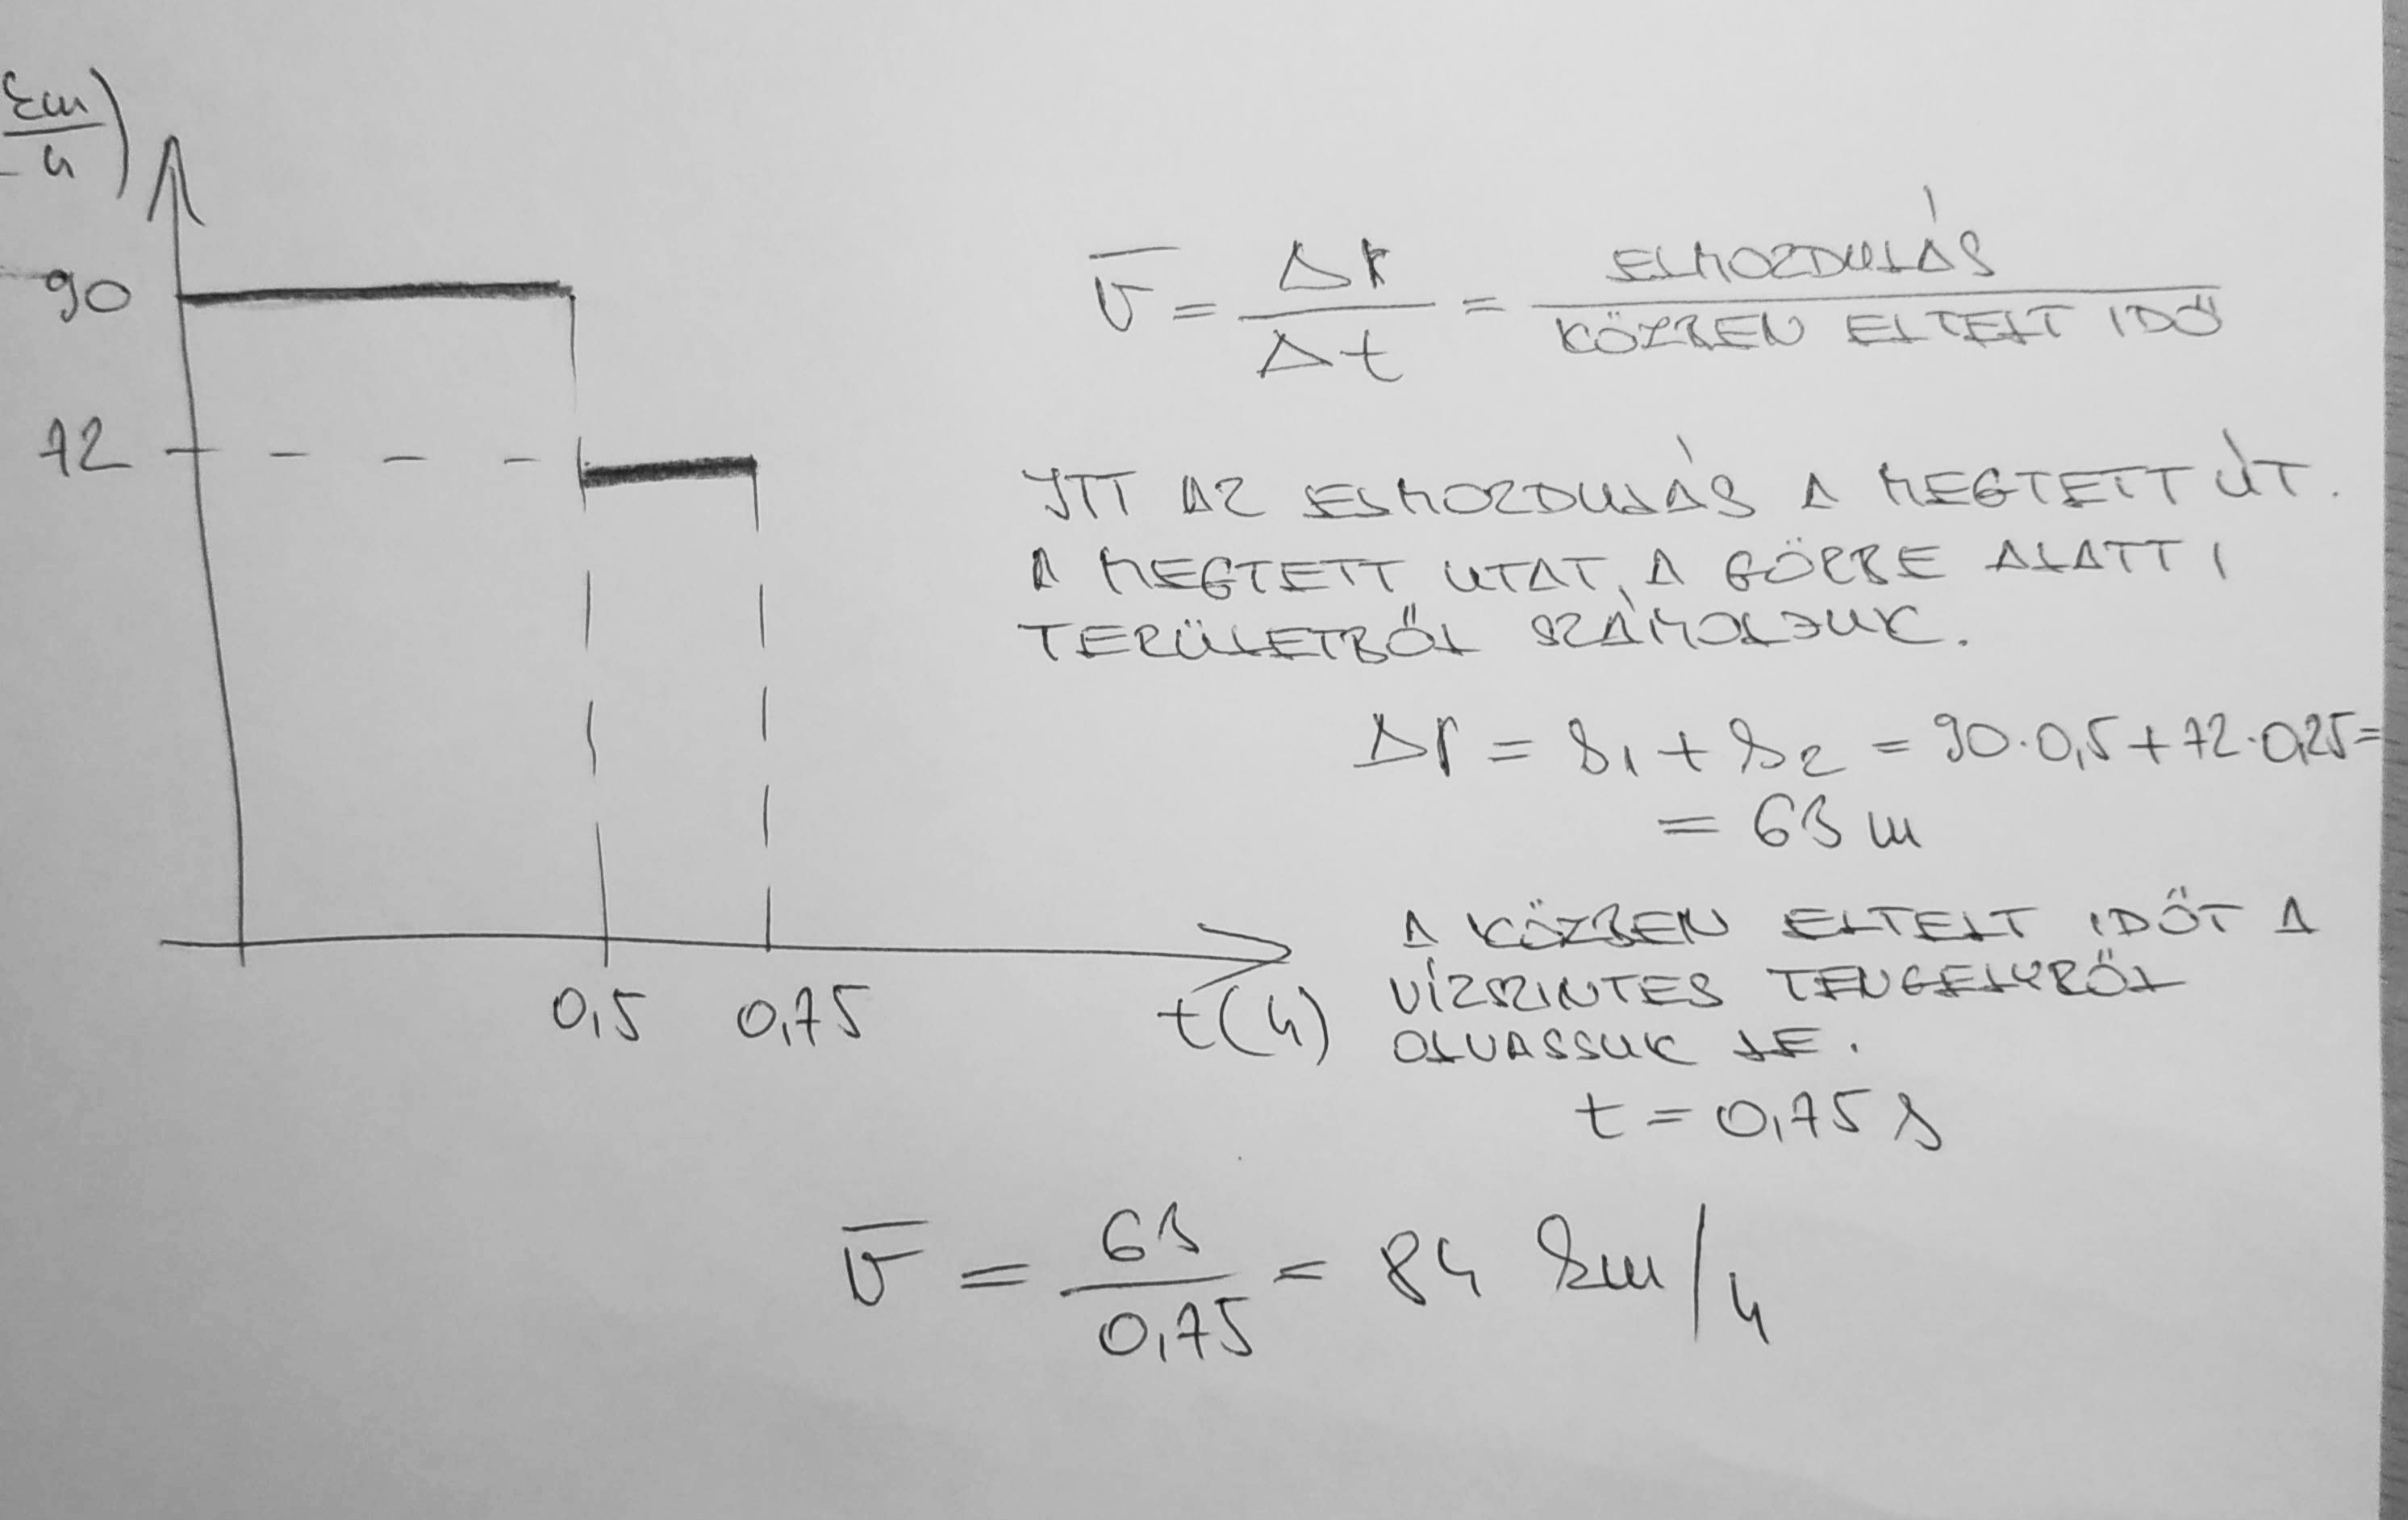 km/h)
90
72
0,5 0,75 t(h)
v̄ = Δr/Δt = ELMOZDULÁS/KÖZBEN ELTELT IDŐ
ITT AZ ELMOZDULÁS A MEGTETT ÚT.
A MEGTETT UTAT, A GÖRBE ALATTI
TERÜLETBŐL SZÁMOLJUK.
Δr = s₁ + s₂ = 90·0,5 + 72·0,25 =
= 63 m
A KÖZBEN ELTELT IDŐT A
VÍZSZINTES TENGELYRŐL
OLVASSUK LE.
t = 0,75 s
v̄ = 63/0,75 = 84 km/h